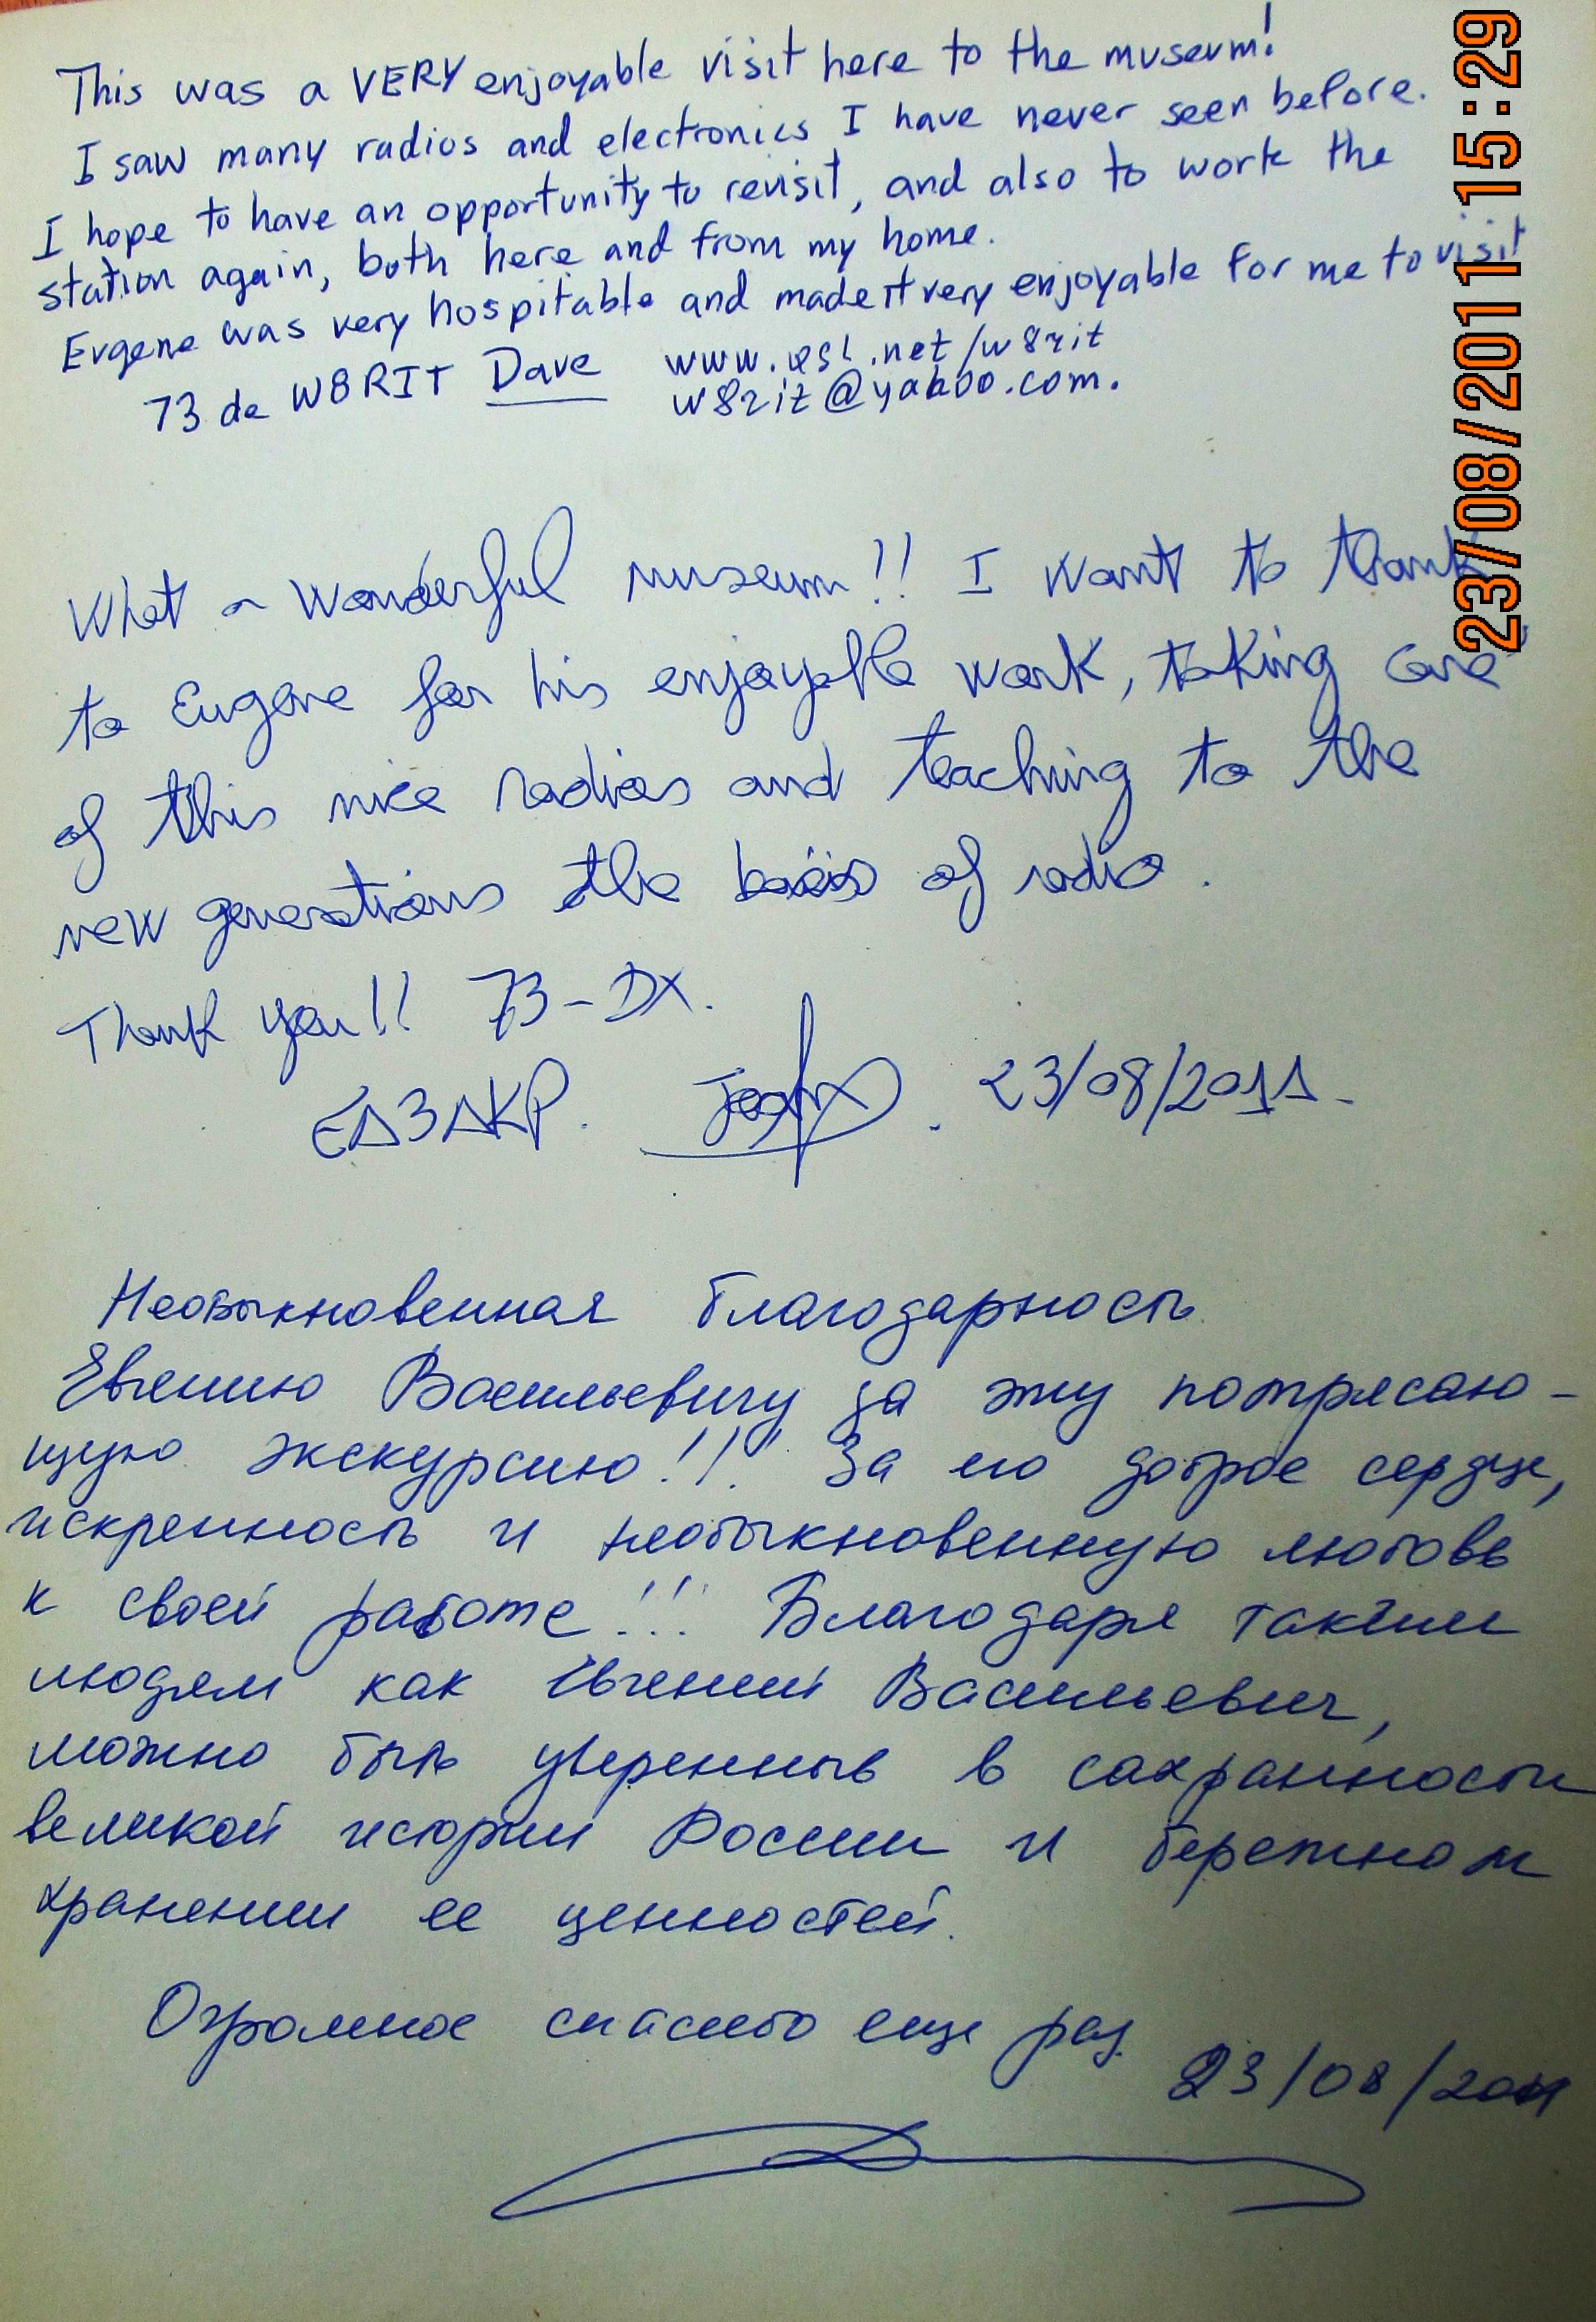 This was a VERY enjoyable visit here to the museum!
I saw many radios and electronics I have never seen before.
I hope to have an opportunity to revisit, and also to work the
station again, both here and from my home.
Evgene was very hospitable and made it very enjoyable for me to visit
73 de W8RIT Dave www.qsl.net/w8rit
w8rit@yahoo.com.
What a wonderful museum!! I want to thank
to Eugene for his enjoyable work, taking care
of this nice radios and teaching to the
new generations the basis of radio.
Thank you!! 73-DX.
EA3AKP. 23/08/2011-
Необыкновенная благодарность
Евгению Васильевичу за эту потрясаю-
щую экскурсию!!! За его доброе сердце,
искренность и необыкновенную любовь
к своей работе!!! Благодаря таким
людям как Евгений Васильевич,
можно быть уверенныв в сохранности
великой истории России и бережном
хранении ее ценностей.
Огромное спасибо еще раз.
23/08/2011
23/08/2011 15:29